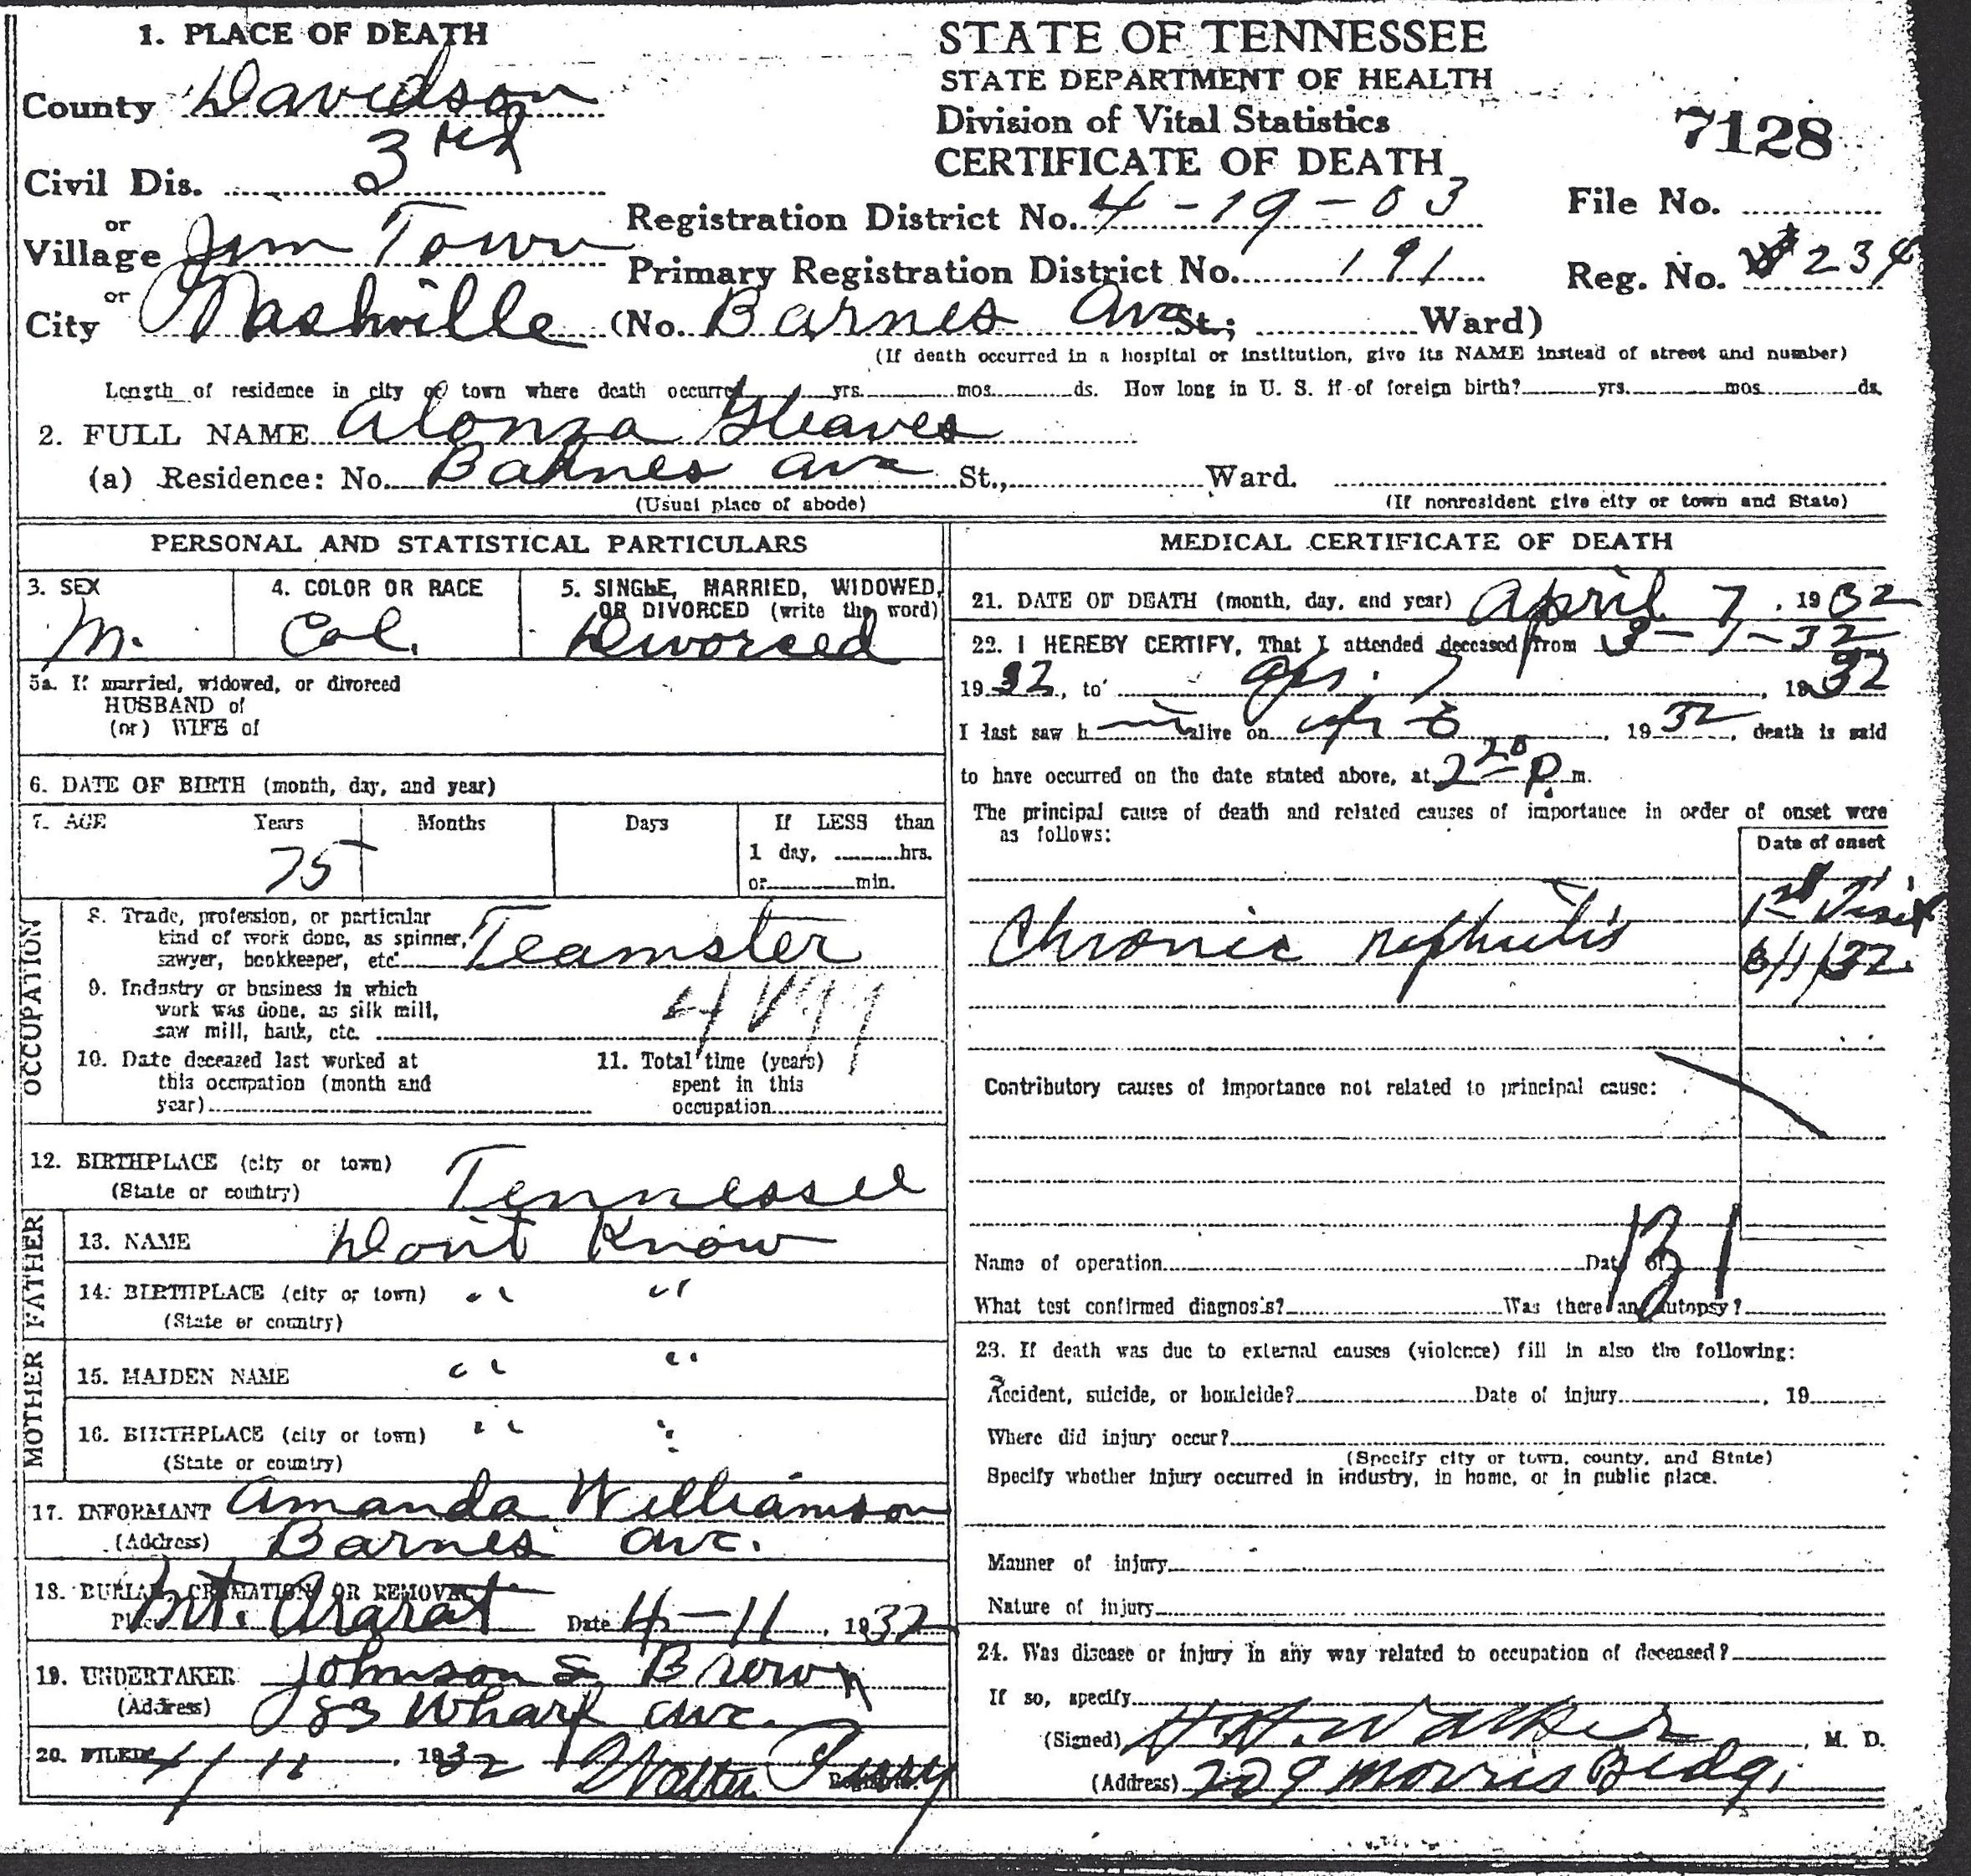 1. PLACE OF DEATH
County Davidson
Civil Dis. 3rd
or
Village Jim Town
or
City Nashville (No. Barnes Ave St.; Ward)
STATE OF TENNESSEE
STATE DEPARTMENT OF HEALTH
Division of Vital Statistics
CERTIFICATE OF DEATH
7128
Registration District No. 4-19-03
File No.
Primary Registration District No. 191
Reg. No. 234
(If death occurred in a hospital or institution, give its NAME instead of street and number)
Length of residence in city or town where death occurred yrs. mos. ds. How long in U. S. if of foreign birth? yrs. mos. ds.
2. FULL NAME Alonza Gleaves
(a) Residence: No. Barnes Ave St., Ward.
(Usual place of abode) (If nonresident give city or town and State)
PERSONAL AND STATISTICAL PARTICULARS
3. SEX M.
4. COLOR OR RACE Col.
5. SINGLE, MARRIED, WIDOWED,
OR DIVORCED (write the word)
Divorced
5a. If married, widowed, or divorced
HUSBAND of
(or) WIFE of
6. DATE OF BIRTH (month, day, and year)
7. AGE Years Months Days If LESS than
75 1 day, hrs.
or min.
OCCUPATION
8. Trade, profession, or particular
kind of work done, as spinner,
sawyer, bookkeeper, etc. Teamster
9. Industry or business in which
work was done, as silk mill,
saw mill, bank, etc.
10. Date deceased last worked at
this occupation (month and
year)
11. Total time (years)
spent in this
occupation
12. BIRTHPLACE (city or town)
(State or country) Tennessee
FATHER
13. NAME Don't Know
14. BIRTHPLACE (city or town) " "
(State or country)
MOTHER
15. MAIDEN NAME " "
16. BIRTHPLACE (city or town) " "
(State or country)
17. INFORMANT Amanda Williamson
(Address) Barnes ave.
18. BURIAL, CREMATION OR REMOVAL
Place Mt. Ararat Date 4-11, 1932
19. UNDERTAKER Johnson & Brown
(Address) 83 Wharf ave.
20. FILED 4/11, 1932 Walter
MEDICAL CERTIFICATE OF DEATH
21. DATE OF DEATH (month, day, and year) April 7, 1932
22. I HEREBY CERTIFY, That I attended deceased from 3-1-32
1932, to Apr. 7, 1932
I last saw h im alive on Apr 6, 1932, death is said
to have occurred on the date stated above, at 2 20 P. m.
The principal cause of death and related causes of importance in order of onset were
as follows:
Date of onset
Chronic nephritis
1st Visit
3/1/32
Contributory causes of importance not related to principal cause:
131
Name of operation Date of
What test confirmed diagnosis? Was there an autopsy?
23. If death was due to external causes (violence) fill in also the following:
Accident, suicide, or homicide? Date of injury, 19
Where did injury occur?
(Specify city or town, county, and State)
Specify whether injury occurred in industry, in home, or in public place.
Manner of injury
Nature of injury
24. Was disease or injury in any way related to occupation of deceased?
If so, specify
(Signed) H. H. Walker, M. D.
(Address) 209 Morris Bldg.